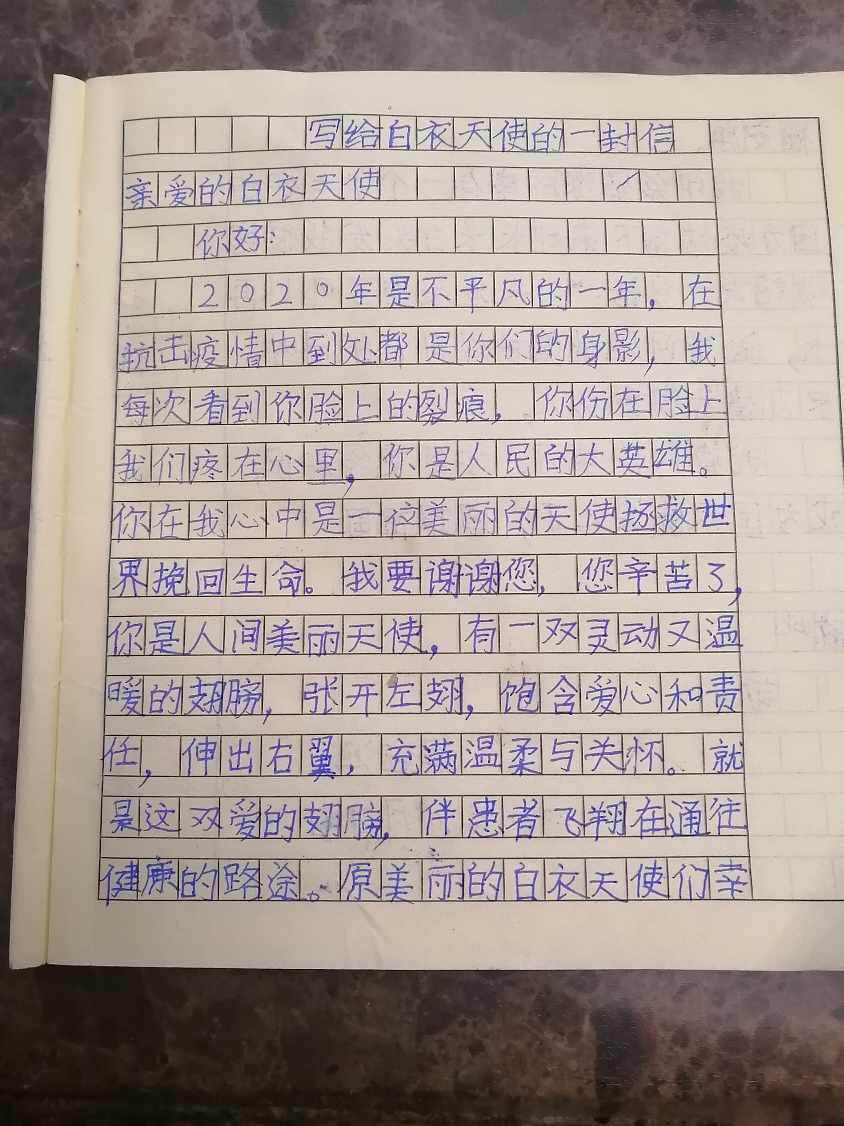 写给白衣天使的一封信
亲爱的白衣天使
你好:
2020年是不平凡的一年，在
抗击疫情中到处都是你们的身影，我
每次看到你脸上的裂痕，你伤在脸上
我们疼在心里，你是人民的大英雄。
你在我心中是一位美丽的天使拯救世
界挽回生命。我要谢谢您，您辛苦了，
你是人间美丽天使，有一双灵动又温
暖的翅膀，张开左翅，饱含爱心和责
任，伸出右翼，充满温柔与关怀。就
是这双爱的翅膀，伴患者飞翔在通往
健康的路途。原美丽的白衣天使们幸